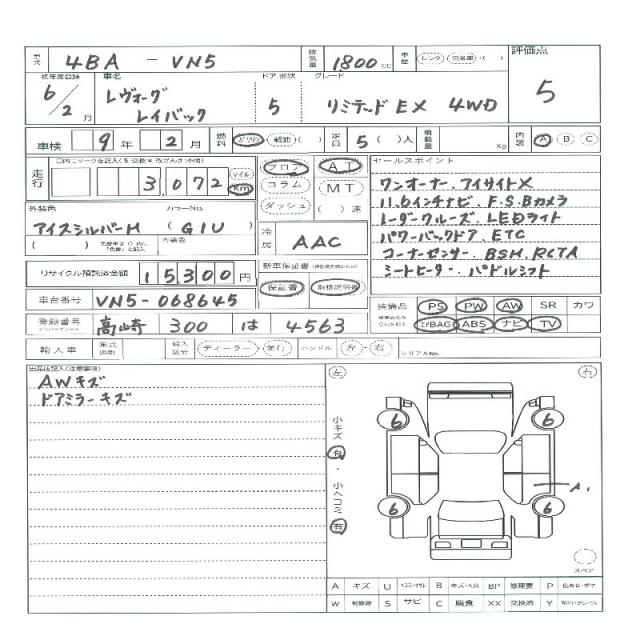 型式 4BA - VN5 排気量 1800 cc 車歴 レンタ・( )
評価点 5
初年度登録 6/2月 車名 レヴォーグ レイバック ドア 形状 5 グレード リミテッド EX 4WD
車検 9年 2月 燃料 ガソリン・軽油( ) 定員 5( )人 積載量 Kg 内装 A B C
走行 3,072 マイル Km
フロア AT
コラム MT
ダッシュ ( )速
外装色 カラーNo.
アイスシルバーM (G1U)
内装色
冷房 AAC
リサイクル預託済金額 15300円
新車保証書
保証書 取扱説明書
車台番号 VN5-068645
登録番号 高崎 300 は 4563
輸入車 年式 輸入区分 ディーラー・並行 ハンドル 左・右 シリアルNo.
セールスポイント
ワンオーナー、アイサイトX
11.6インチナビ、F.S.Bカメラ
レーダークルーズ、LEDライト
パワーバックドア、ETC
コーナーセンサー、BSM.RCTA
シートヒーター、パドルシフト
装備品 PS PW AW SR カワ
I/BAG ABS ナビ TV
出品店記入(注意事項)
AWキズ
ドアミラーキズ
左 右
小キズ 有・小ヘコミ 有
6 6
A1
6 6
スペア
A キズ U B キズ・ヘコミ BP 修理要 P
W S サビ C 腐食 XX 交換済 Y